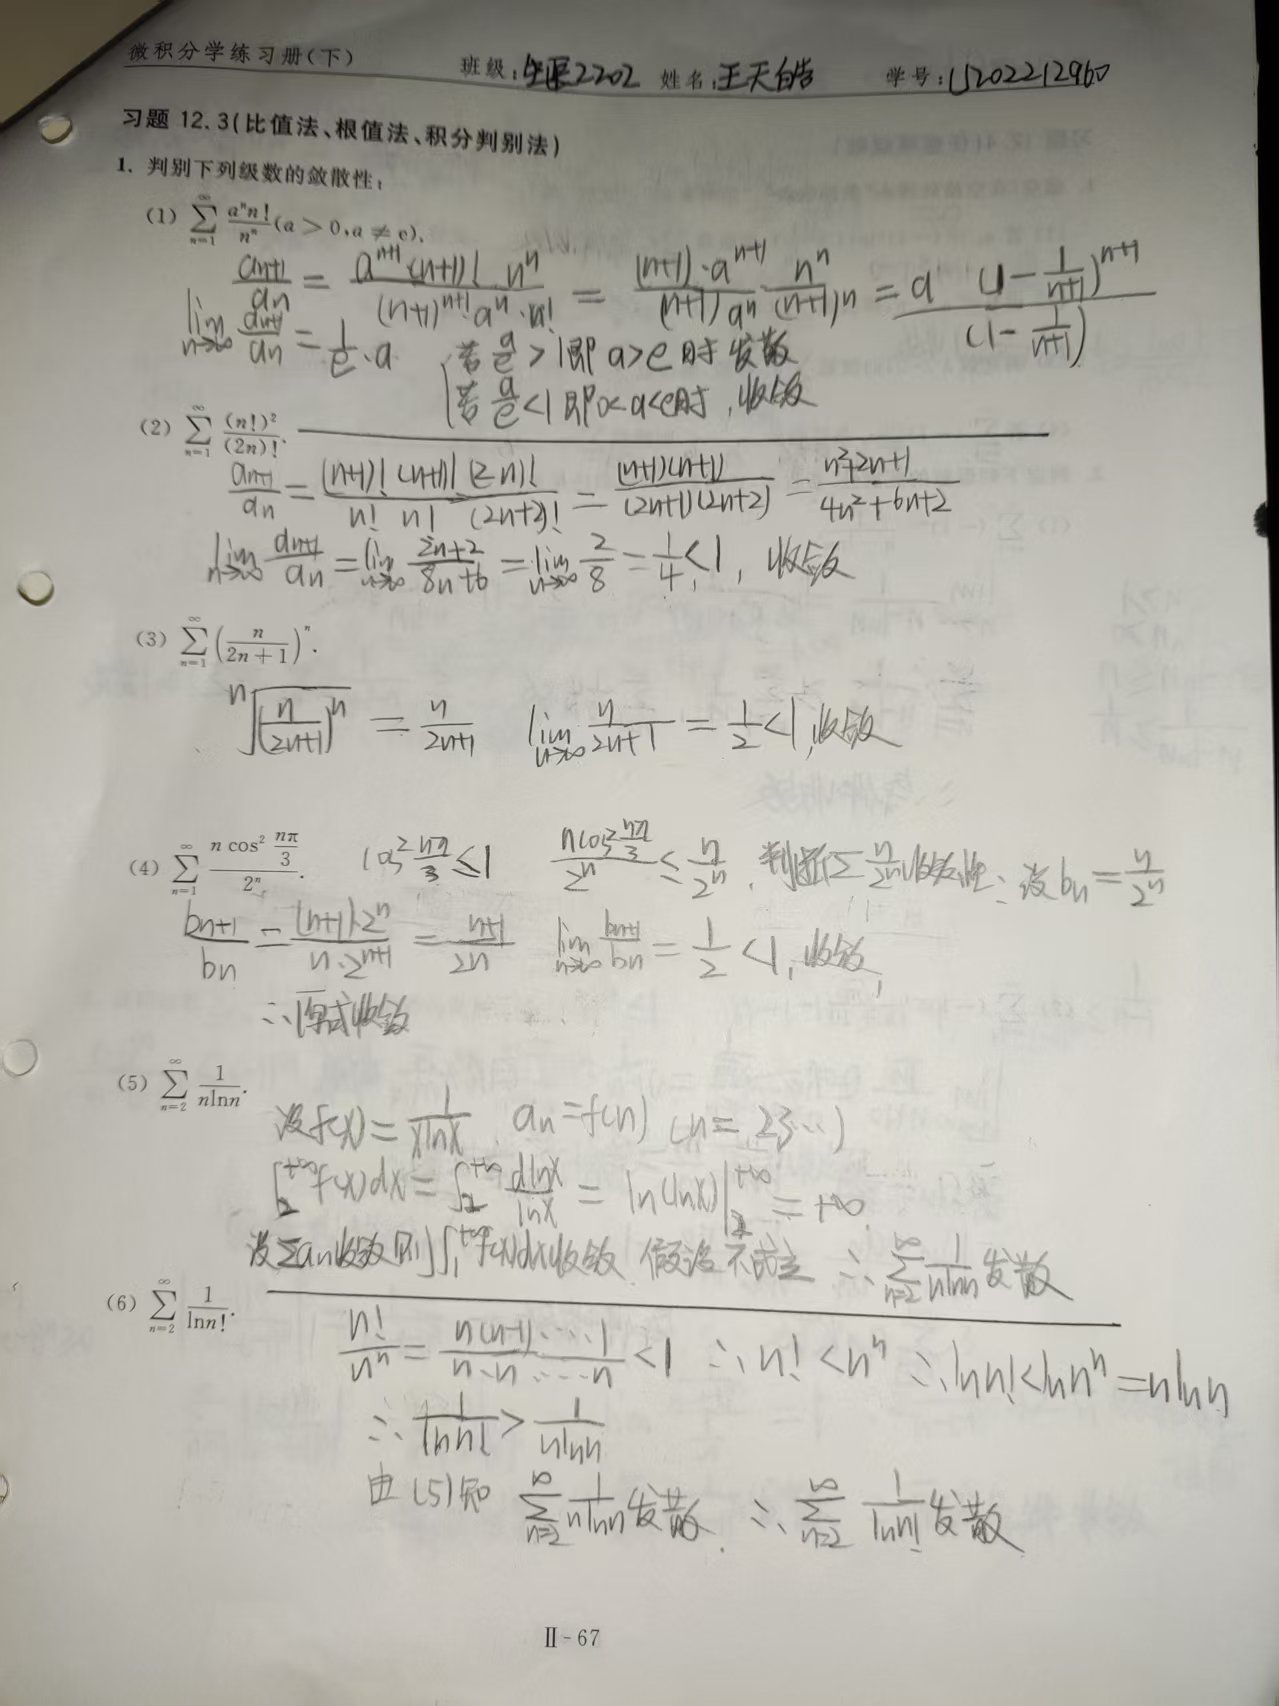 微积分学练习册(下) 班级:生医2202 姓名:王天皓 学号:U202212960
习题 12.3(比值法、根值法、积分判别法)
1. 判别下列级数的敛散性:
(1) \sum_{n=1}^{\infty} \frac{a^n n!}{n^n} (a > 0, a ≠ e).
\frac{a_{n+1}}{a_n} = \frac{a^{n+1}(n+1)! n^n}{(n+1)^{n+1} a^n · n!} = \frac{(n+1)·a^{n+1}}{(n+1) a^n} \frac{n^n}{(n+1)^n} = \frac{a (1-\frac{1}{n+1})^{n+1}}{(1-\frac{1}{n+1})}
\lim_{n→∞} \frac{a_{n+1}}{a_n} = \frac{1}{e}·a 若\frac{a}{e} > 1即 a>e时 发散
若\frac{a}{e}<1 即0<a<e时, 收敛
(2) \sum_{n=1}^{\infty} \frac{(n!)^2}{(2n)!}.
\frac{a_{n+1}}{a_n} = \frac{(n+1)! (n+1)! (2n)!}{n! n! (2n+2)!} = \frac{(n+1)(n+1)}{(2n+1)(2n+2)} = \frac{n^2+2n+1}{4n^2+6n+2}
\lim_{n→∞} \frac{a_{n+1}}{a_n} = \lim_{n→∞} \frac{2n+2}{8n+6} = \lim_{n→∞} \frac{2}{8} = \frac{1}{4}<1, 收敛
(3) \sum_{n=1}^{\infty} (\frac{n}{2n+1})^n.
\sqrt[n]{(\frac{n}{2n+1})^n} = \frac{n}{2n+1} \lim_{n→∞} \frac{n}{2n+1} = \frac{1}{2}<1,收敛
(4) \sum_{n=1}^{\infty} \frac{n cos^2 \frac{nπ}{3}}{2^n}. cos^2 \frac{nπ}{3} ≤ 1 \frac{n cos^2 \frac{nπ}{3}}{2^n} ≤ \frac{n}{2^n}, 判断∑\frac{n}{2^n}收敛性: 设b_n = \frac{n}{2^n}
\frac{b_{n+1}}{b_n} = \frac{(n+1)·2^n}{n·2^{n+1}} = \frac{n+1}{2n} \lim_{n→∞} \frac{b_{n+1}}{b_n} = \frac{1}{2} <1, 收敛,
∴原式收敛
(5) \sum_{n=2}^{\infty} \frac{1}{nlnn}.
设f(x) = \frac{1}{xlnx}, a_n = f(n) (n = 2,3…)
\int_2^{+∞} f(x)dx = \int_2^{+∞} \frac{dlnx}{lnx} = ln(lnx)|_2^{+∞} = +∞.
设∑an收敛 则\int_1^{+∞}f(x)dx收敛 假设不成立 ∴ \sum_{n=2}^{∞} \frac{1}{nlnn} 发散
(6) \sum_{n=2}^{\infty} \frac{1}{lnn!}.
\frac{n!}{n^n} = \frac{n(n-1)·····1}{n·n·····n} < 1 ∴ n! < n^n ∴ lnn!<lnn^n = nlnn
∴ \frac{1}{lnn!} > \frac{1}{nlnn}
由(5)知 \sum_{n=2}^{∞} \frac{1}{nlnn}发散. ∴ \sum_{n=2}^{∞} \frac{1}{lnn!} 发散
Ⅱ-67